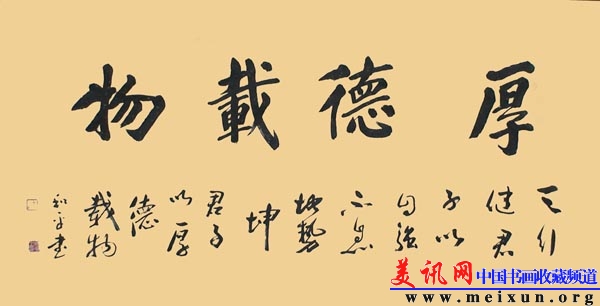 厚德載物
天行
健君
子以
自強
不息
地勢
坤
君子
以厚
德
載物
美讯网 中国书画收藏频道
www.meixun.org